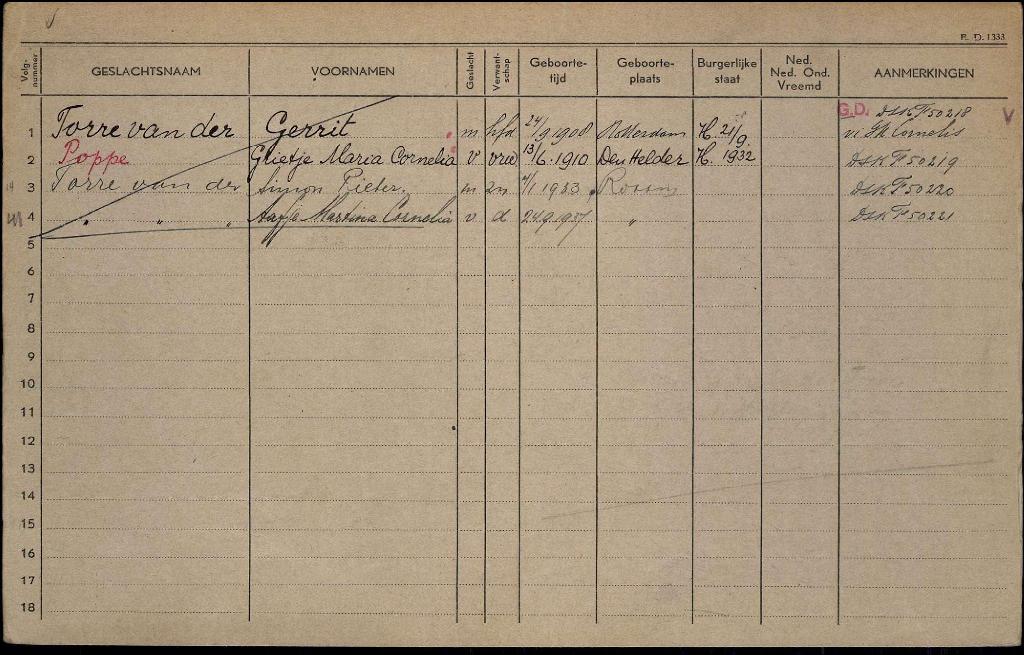 R. D. 1333
Volg-nummer GESLACHTSNAAM VOORNAMEN Geslacht Verwant-schap Geboorte-tijd Geboorte-plaats Burgerlijke staat Ned. Ned. Ond. Vreemd AANMERKINGEN
G.D. DSK F 50218 V
1 Torre van der Gerrit m hfd 24/9 1908 Rotterdam H. 21/9. Cornelis
2 Poppe Grietje Maria Cornelia v vrw 13/6. 1910 Den Helder H. 1932 DSK F 50219
3 Torre van der Simon Pieter. m zn 1933 DSK F 50220
4 " " " Martina Cornelia v d 24.9.1937 " DSK F 50221
5
6
7
8
9
10
11
12
13
14
15
16
17
18